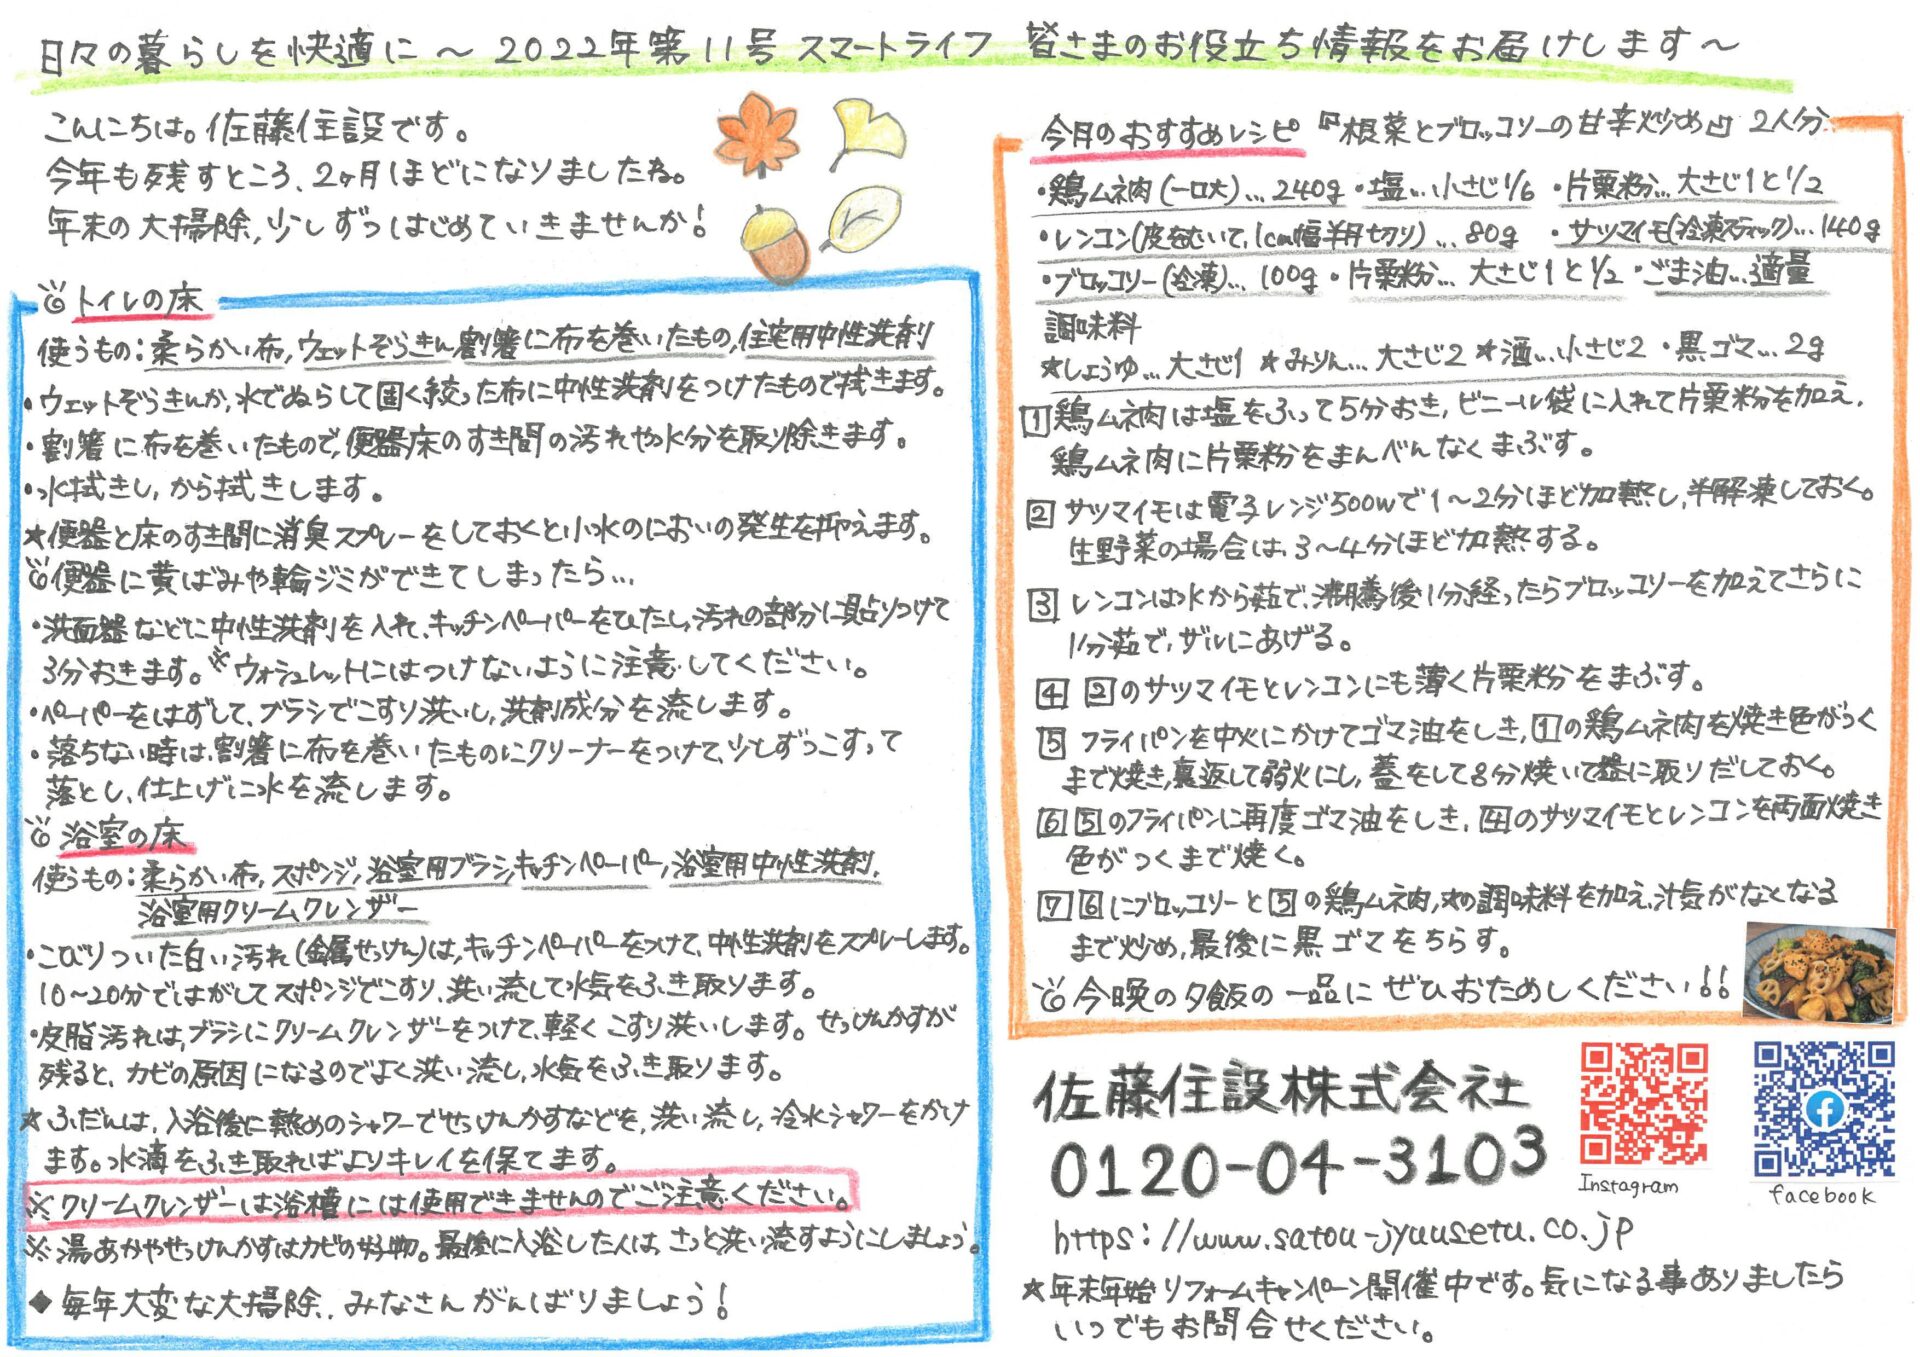 日々の暮らしを快適に～2022年第11号 スマートライフ 皆さまのお役立ち情報をお届けします～
こんにちは。佐藤住設です。
今年も残すところ、2ヶ月ほどになりましたね。
年末の大掃除,少しずつはじめていきませんか!
トイレの床
使うもの:柔らかい布,ウェットぞうきん,割箸に布を巻いたもの,住宅用中性洗剤
・ウェットぞうきんか,水でぬらして固く絞った布に中性洗剤をつけたもので拭きます。
・割箸に布を巻いたもので,便器床のすき間の汚れや水分を取り除きます。
・水拭きし,から拭きします。
★便器と床のすき間に消臭スプレーをしておくと小水のにおいの発生を抑えます。
便器に黄ばみや輪ジミができてしまったら…
・洗面器などに中性洗剤を入れ、キッチンペーパーをひたし,汚れの部分に貼りつけて
3分おきます。※ウォシュレットにはつけないように注意してください。
・ペーパーをはずして、ブラシでこすり洗いし,洗剤成分を流します。
・落ちない時は、割箸に布を巻いたものにクリーナーをつけて、少しずつこすって
落とし、仕上げに水を流します。
浴室の床
使うもの:柔らかい布,スポンジ,浴室用ブラシ,キッチンペーパー,浴室用中性洗剤,
浴室用クリームクレンザー
・こびりついた白い汚れ(金属せっけん)は,キッチンペーパーをつけて,中性洗剤をスプレーします。
10～20分ではがしてスポンジでこすり,洗い流して水気をふき取ります。
・皮脂汚れは,ブラシにクリームクレンザーをつけて,軽くこすり洗いします。せっけんかすが
残ると、カビの原因になるのでよく洗い流し,水気をふき取ります。
★ふだんは、入浴後に熱めのシャワーでせっけんかすなどを、洗い流し,冷水シャワーをかけ
ます。水滴をふき取ればよりキレイを保てます。
※クリームクレンザーは浴槽には使用できませんのでご注意ください。
※湯あかやせっけんかすはカビの好物。最後に入浴した人は、さっと洗い流すようにしましょう。
◆毎年大変な大掃除‥みなさんがんばりましょう!
今月のおすすめレシピ『根菜とブロッコリーの甘辛炒め』2人分
・鶏ムネ肉(一口大)…240g ・塩…小さじ1/6 ・片栗粉…大さじ1と1/2
・レンコン(皮をむいて,1cm幅半月切り)…80g ・サツマイモ(冷凍スティック)…140g
・ブロッコリー(冷凍)…100g ・片栗粉…大さじ1と1/2 ・ごま油…適量
調味料
★しょうゆ…大さじ1 ★みりん…大さじ2 ★酒…小さじ2 ・黒ゴマ…2g
1 鶏ムネ肉は塩をふって5分おき,ビニール袋に入れて片栗粉を加え,
鶏ムネ肉に片栗粉をまんべんなくまぶす。
2 サツマイモは電子レンジ500Wで1～2分ほど加熱し,半解凍しておく。
生野菜の場合は、3～4分ほど加熱する。
3 レンコンは水から茹で,沸騰後1分経ったらブロッコリーを加えてさらに
1分茹で,ザルにあげる。
4 2のサツマイモとレンコンにも薄く片栗粉をまぶす。
5 フライパンを中火にかけてゴマ油をしき,1の鶏ムネ肉を焼き色がつく
まで焼き,裏返して弱火にし,蓋をして8分焼いて器に取りだしておく。
6 5のフライパンに再度ゴマ油をしき,4のサツマイモとレンコンを両面焼き
色がつくまで焼く。
7 6にブロッコリーと5の鶏ムネ肉,★の調味料を加え、汁気がなくなる
まで炒め,最後に黒ゴマをちらす。
今晩の夕飯の一品にぜひおためしください!!
佐藤住設株式会社
0120-04-3103
Instagram
facebook
https://www.satou-jyuusetu.co.jp
★年末年始リフォームキャンペーン開催中です。気になる事ありましたら
いつでもお問合せください。